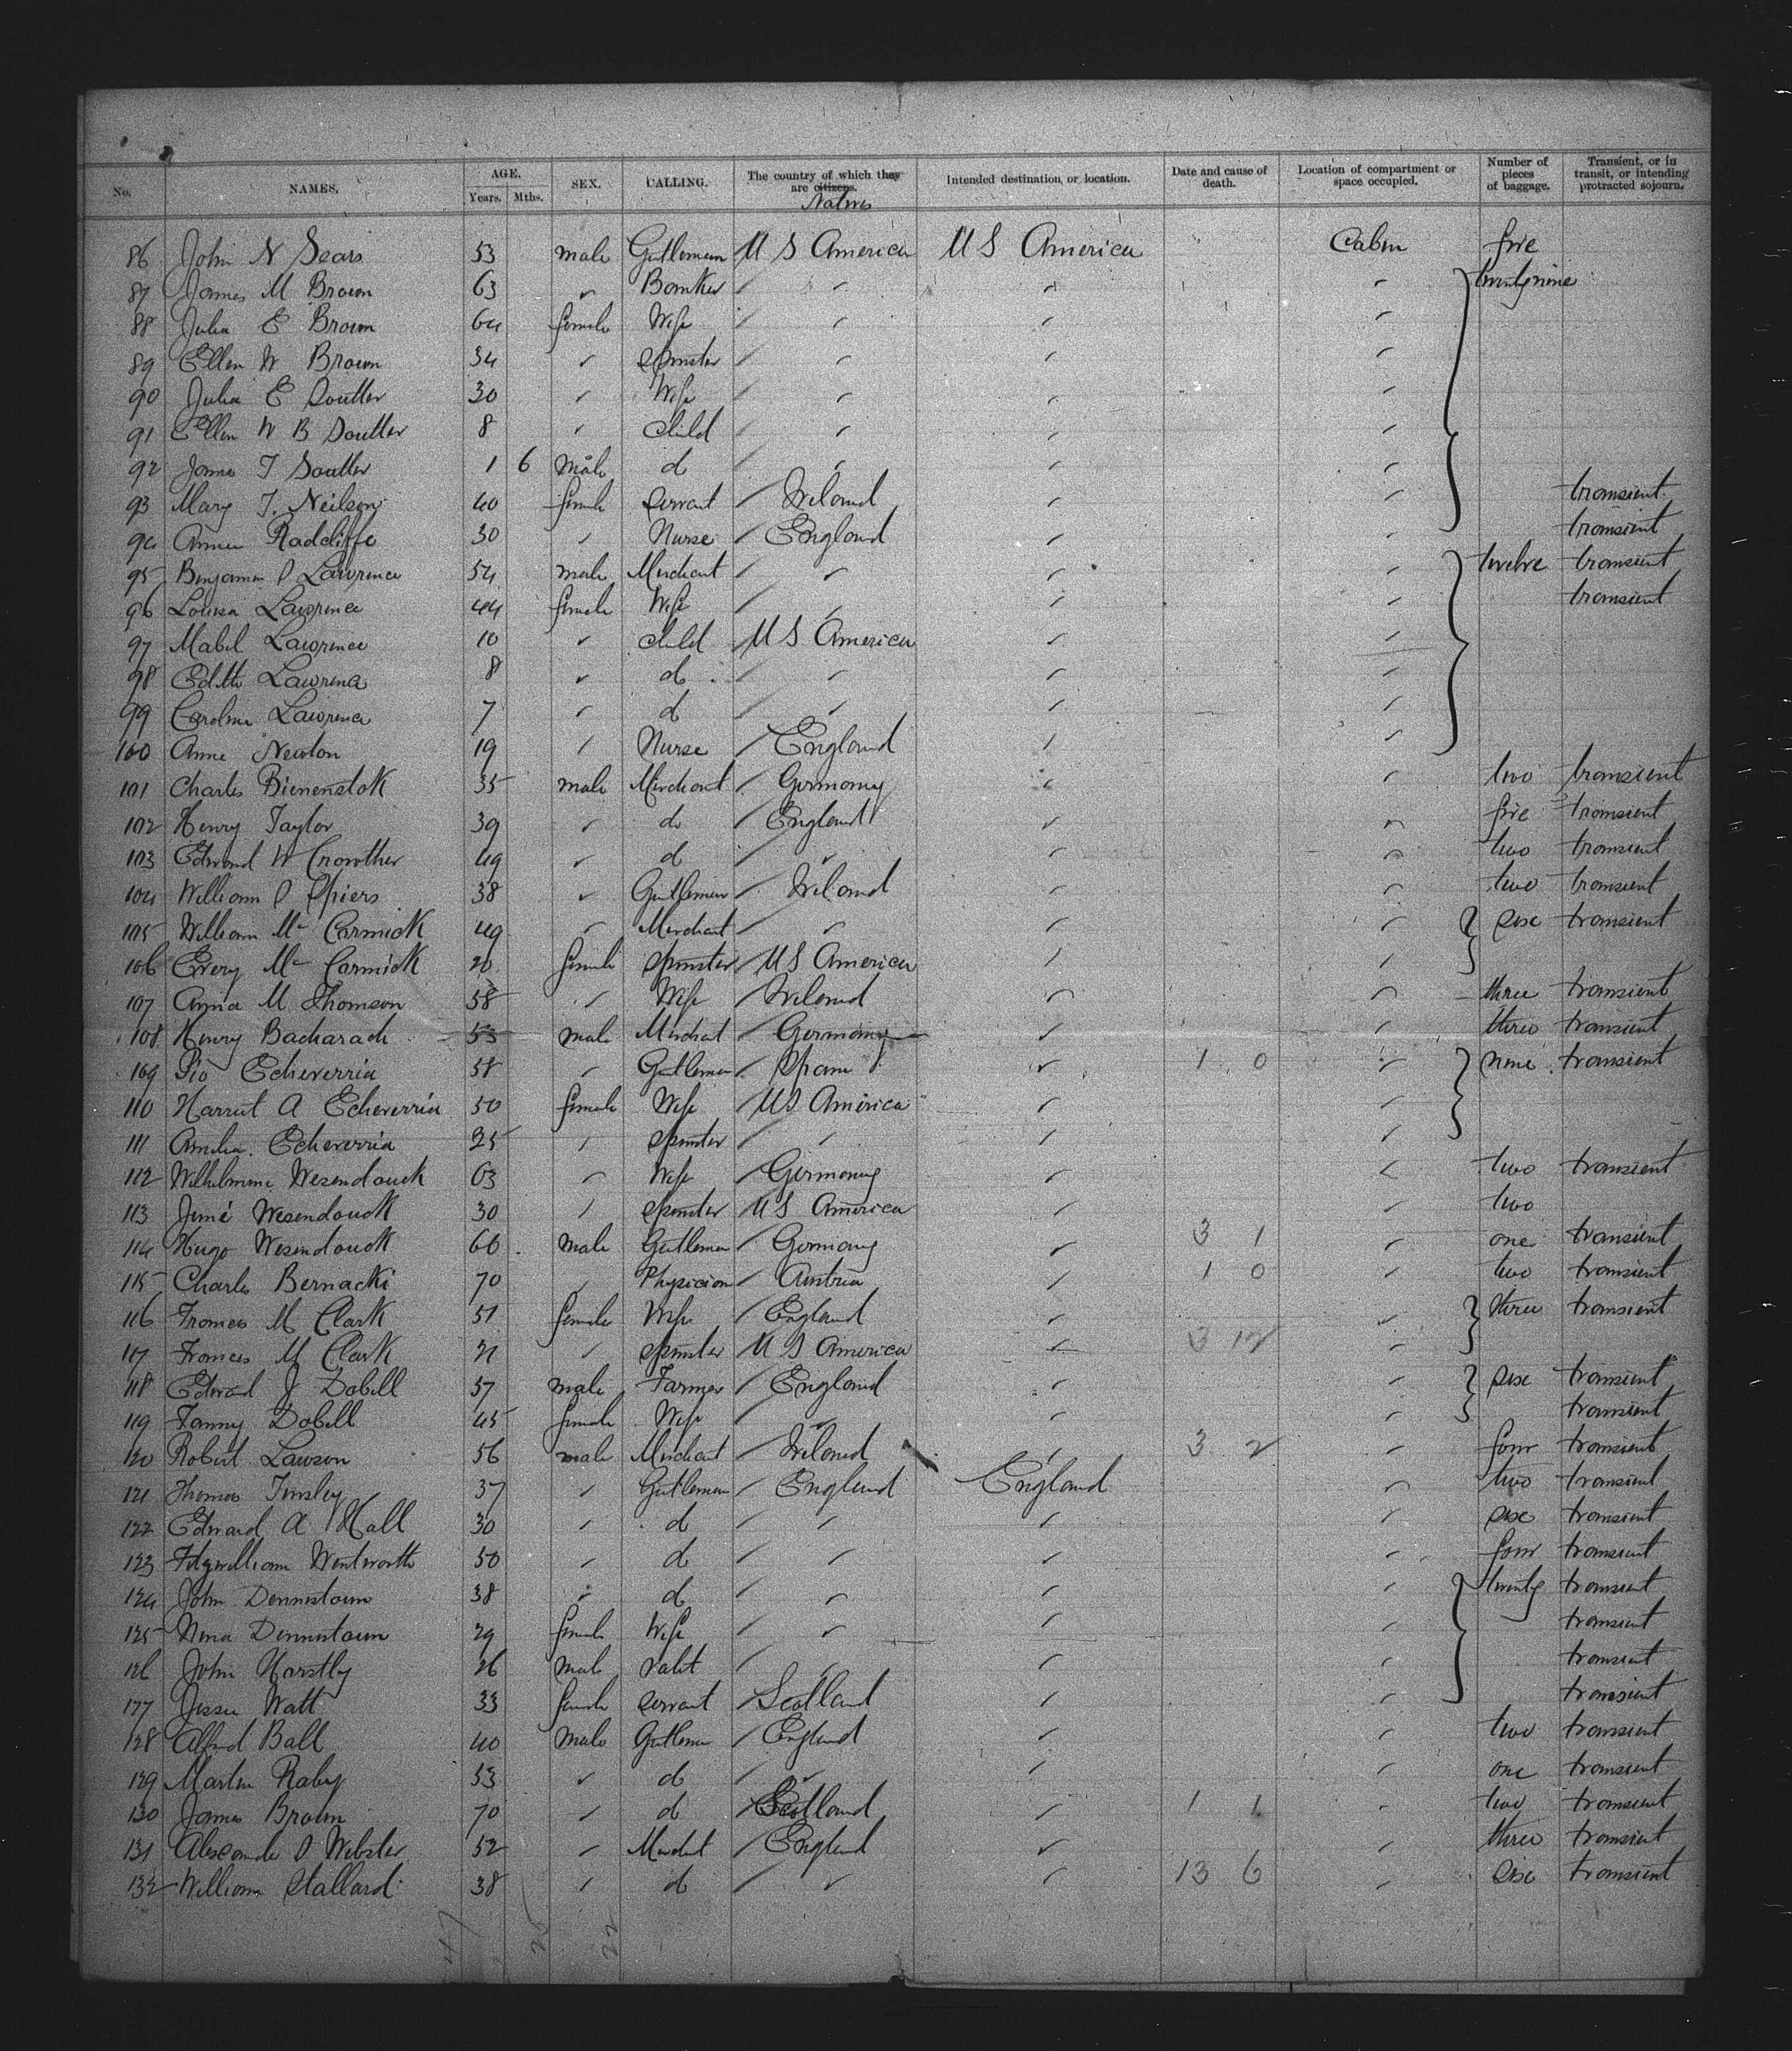 No. NAMES. AGE. Years. Mths. SEX. CALLING. The country of which they are citizens. Natives Intended destination, or location. Date and cause of death. Location of compartment or space occupied. Number of pieces of baggage. Transient, or in transit, or intending protracted sojourn.
86 John N Sears 53 male Gentleman U S America U S America Cabin five
87 James M Brown 63 " Banker / " " " twentynine
88 Julia E Brown 64 female Wife / " " "
89 Ellen W Brown 34 " Spinster / " " "
90 Julia E Soutter 30 " Wife / " " "
91 Ellen W B Soutter 8 " Child / " " "
92 James T Soutter 1 6 Male do / " " "
93 Mary T. Neilson 40 female Servant / Ireland " " transient
94 Annie Radcliffe 30 " Nurse / England " " transient
95 Benjamin Lawrence 54 male Merchant / " " twelve transient
96 Louisa Lawrence 44 female Wife / " " transient
97 Mabel Lawrence 10 " child / U S America " "
98 Edith Lawrence 8 " do / " " "
99 Caroline Lawrence 7 " do / " " "
100 Anne Newton 19 " Nurse / England " "
101 Charles Bienenstok 35 male Merchant / Germany " " two transient
102 Henry Taylor 39 " do / England " " five transient
103 Edward W Crowther 49 " do / " " " two transient
104 William Spiers 38 " Gentleman / Ireland " " two transient
105 William Mc Cormick 49 " Merchant / " " " six transient
106 Mc Cormick 20 female Spinster / U S America " "
107 Anna M Thomson 58 " Wife / Ireland " " three transient
108 Henry Bacharach 53 male Merchant / Germany " " three transient
109 Pio Echeverria 58 " Gentleman / Spain " 1 0 " nine transient
110 Harriet A Echeverria 50 female Wife / U S America " "
111 Amelia Echeverria 25 " Spinster / " " "
112 Wilhelmine Wesendonck 63 " Wife / Germany " " two transient
113 Wesendonck 30 " Spinster / U S America " " two
114 Hugo Wesendonck 66 male Gentleman / Germany " 3 1 " one transient
115 Charles Bernacki 70 " Physician / Austria " 1 0 " two transient
116 Frances M Clark 51 female Wife / England " " three transient
117 Frances M Clark 21 " Spinster / U S America " 3 12 "
118 Edward J Dobell 57 male Farmer / England " " six transient
119 Fanny Dobell 45 female Wife / " " " transient
120 Robert Lawson 56 male Merchant / Ireland " 3 2 " four transient
121 Thomas Tinsley 37 " Gentleman / England England " two transient
122 Edward A Hall 30 " do / " " " six transient
123 Fitzwilliam Wentworth 50 " do / " " " four transient
124 John Dennistoun 38 " do / " " " twenty transient
125 Nina Dennistoun 29 female Wife / " " " transient
126 John 26 male Valet / " " " transient
127 Jessie Watt 33 female Servant / Scotland " " transient
128 Alfred Ball 40 Male Gentleman / England " " two transient
129 Martin Raby 53 " do / " " " one transient
130 James Brown 70 " do / Scotland " 1 1 " two transient
131 Alexander Webster 52 " Merchant / England " three transient
132 William Stallard 38 " do / " " 13 6 " six transient
47 25 22